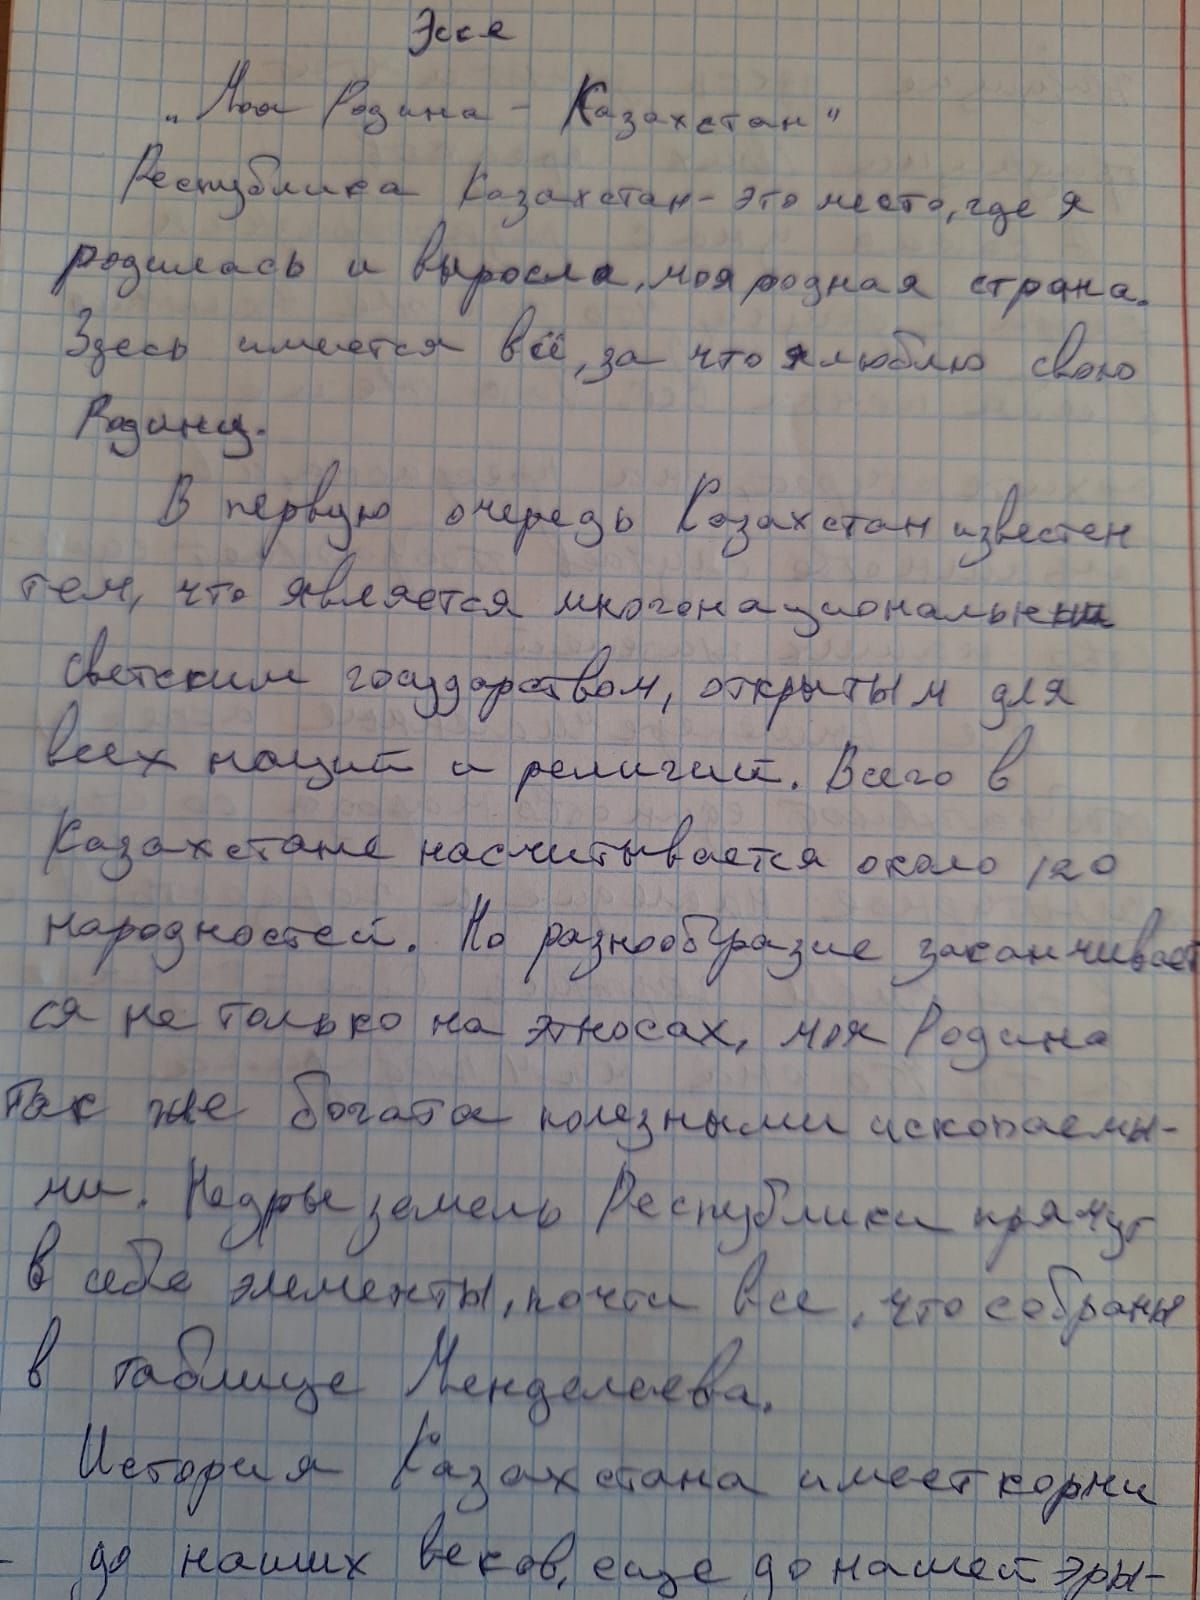 Эссе
„Моя Родина - Казахстан"
Республика Казахстан - это место, где я
родилась и выросла, моя родная страна.
Здесь имеется всё, за что я люблю свою
Родину.
В первую очередь Казахстан известен
тем, что является многонациональным
светским государством, открытым для
всех наций и религий. Всего в
Казахстане насчитывается около 120
народностей. Но разнообразие заканчивает
ся не только на этносах, моя Родина
так же богата полезными ископаемы-
ми. Недры земель Республики прячут
в себе элементы, почти все, что собраны
в таблице Менделеева.
История Казахстана имеет корни
- до наших веков, еще до нашей эры-